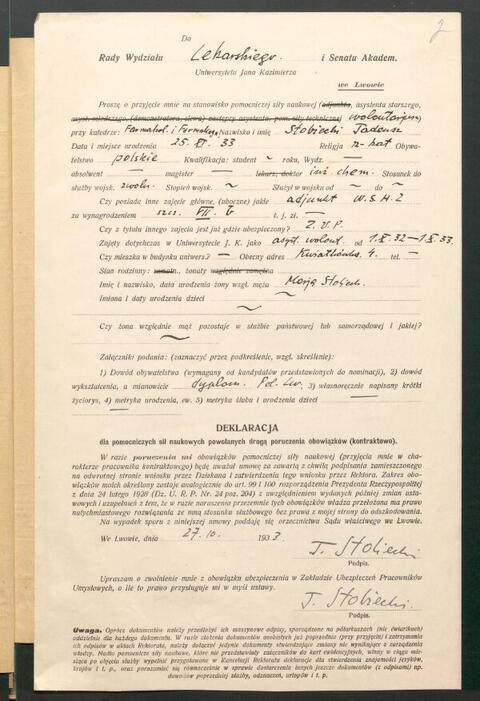 2
Do
Rady Wydziału Lekarskiego i Senatu Akadem.
Uniwersytetu Jana Kazimierza
we Lwowie
Proszę o przyjęcie mnie na stanowisko pomocniczej siły naukowej (adjunkta, asystenta starszego,
asyst. młodszego, (demonstratora, elewa) zastępcy asystenta, pom. siły technicznej wolontarjusza
przy katedrze: Farmakol. i Farmakogn. Nazwisko i imię Stobiecki Tadeusz
Data i miejsce urodzenia 25. 33 Religja rz-kat Obywa-
telstwo polskie Kwalifikacja: student ~ roku, Wydz. —
absolwent — magister — lekarz, doktor inż. chem. Stosunek do
służby wojsk. zwoln. Stopień wojsk. ~ Służył w wojsku od ~ do ~
Czy posiada inne zajęcie główne, (uboczne) jakie adjunkt W.S.H.Z
za wynagrodzeniem szcz. VII. b t. j. zł. —
Czy z tytułu innego zajęcia jest już gdzie ubezpieczony? Z.U.P.
Zajęty dotychczas w Uniwersytecie J. K. jako asyst. wolont. od 1.X.32 — 1.X.33.
Czy mieszka w budynku uniwers? — Obecny adres Kwiatkówka 4. tel. —
Stan rodzinny: żonaty względnie zamężna
Imię i nazwisko, data urodzenia żony wzgl. męża Marja Stobiecka
Imiona i daty urodzenia dzieci ~
~
Czy żona względnie mąż pozostaje w służbie państwowej lub samorządowej i jakiej?
~
Załączniki podania: (zaznaczyć przez podkreślenie, wzgl. skreślenie):
1) Dowód obywatelstwa (wymagany od kandydatów przedstawionych do nominacji), 2) dowód
wykształcenia, a mianowicie dyplom. Pol. Lw. 3) własnoręcznie napisany krótki
życiorys, 4) metryka urodzenia, ew. 5) metryka ślubu i urodzenia dzieci
DEKLARACJA
dla pomocniczych sił naukowych powołanych drogą poruczenia obowiązków (kontraktowo).
W razie poruczenia mi obowiązków pomocniczej siły naukowej (przyjęcia mnie w cha-
rakterze pracownika kontraktowego) będę uważał umowę za zawartą z chwilą podpisania zamieszczonego
na odwrotnej stronie wniosku przez Dziekana i zatwierdzenia tego wniosku przez Rektora. Zakres obo-
wiązków moich określony zostaje analogicznie do art. 99 i 100 rozporządzenia Prezydenta Rzeczypospolitej
z dnia 24 lutego 1928 (Dz. U. R. P. Nr. 24 poz. 204) z uwzględnieniem wydanych później zmian ustaw-
owych i uzupełnień z tem, że w razie naruszenia przezemnie tych obowiązków władza przełożona ma prawo
natychmiastowego rozwiązania ze mną stosunku służbowego bez prawa z mojej strony do odszkodowania.
Na wypadek sporu z niniejszej umowy poddaję się orzecznictwu Sądu właściwego we Lwowie.
We Lwowie, dnia 27.10. 1933
T. Stobiecki
Podpis.
Upraszam o zwolnienie mnie z obowiązku ubezpieczenia w Zakładzie Ubezpieczeń Pracowników
Umysłowych, o ile to prawo przysługuje mi w myśl ustawy.
T. Stobiecki
Podpis.
Uwaga. Oprócz dokumentów należy przedłożyć ich maszynowe odpisy, sporządzone na półarkuszach (nie ćwiartkach)
oddzielnie dla każdego dokumentu. W razie złożenia dokumentów osobistych już poprzednio (przy przyjęciu i zatrzymania
ich odpisów w aktach Rektoratu, należy dołączyć jedynie dokumenty stwierdzające zmiany wynikające z zarządzenia
władzy. Nadto pomocnicze siły naukowe, które nie przedstawiały załączników do kart ewidencyjnych, winny w ciągu mie-
siąca po objęciu służby wypełnić przygotowane w Kancelarji Rektoratu deklaracje dla stwierdzenia znajomości języków,
krajów i t. p., oraz porozumieć się równocześnie w sprawie dostarczenia innych jeszcze dokumentów (z odpisami) np.
dowodów poprzedniej służby, odznaczeń, urlopów i t. p.